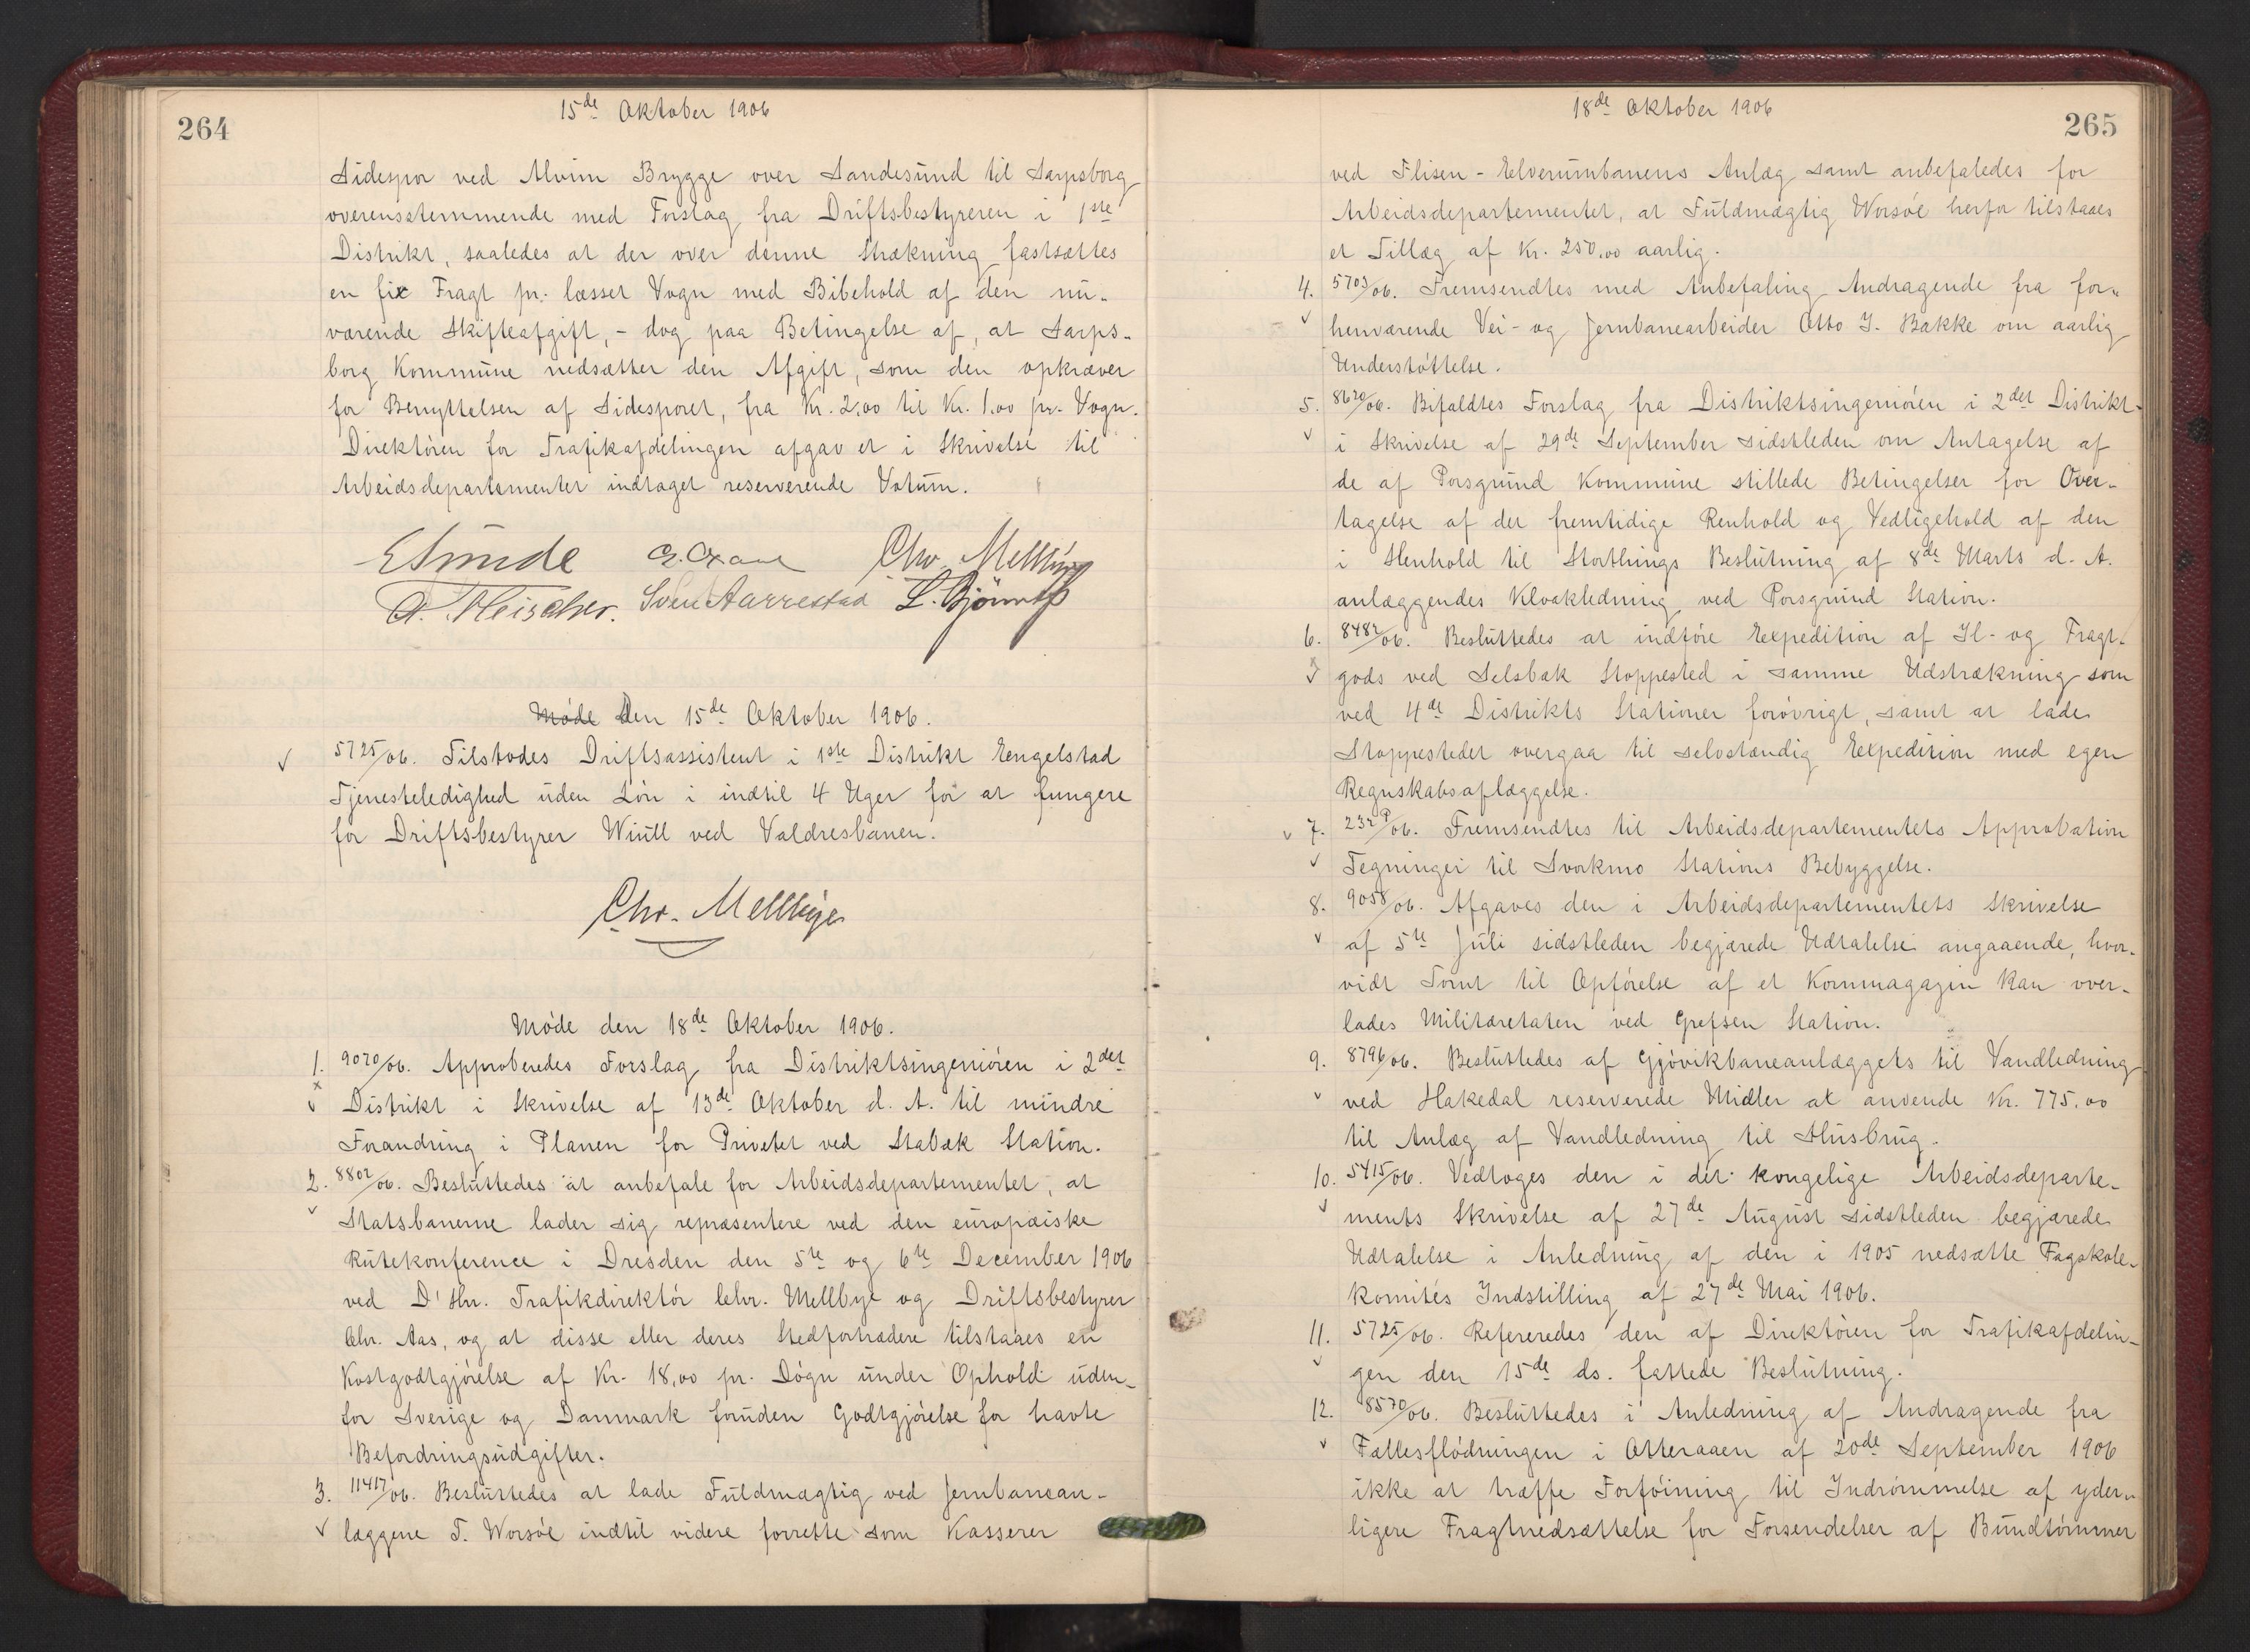 264
15de Oktober 1906
Sidespor ved Alvim Brygge over Sandesund til Sarpsborg
overensstemmende med Forslag fra Driftsbestyreren i 1ste
Distrikt, saaledes at der over denne Strækning fastsættes
en fix Fragt pr. læsset Vogn med Bibehold af den nu-
værende Skifteafgift, - dog paa Betingelse af, at Sarps-
borg Kommune nedsætter den Afgift, som den opkræver
for Benyttelsen af Sidesporet, fra Kr. 2,00 til Kr. 1,00 pr. Vogn.
Direktøren for Trafikafdelingen afgav et i Skrivelse til
Arbeidsdepartementet indtaget reserverende Votum.
ESunde Chr. Mellbye
Sven Aarrestad
Møde Den 15de Oktober 1906.
5725/06. Tilstodes Driftsassistent i 1ste Distrikt Engelstad
Tjenesteledighed uden Løn i indtil 4 Uger for at fungere
for Driftsbestyrer Wiull ved Valdresbanen.
Chr. Mellbye
Møde den 18de Oktober 1906.
1. 9020/06. Approberedes Forslag fra Distriktsingeniøren i 2det
Distrikt i Skrivelse af 13de Oktober d. A. til mindre
Forandring i Planen for Privetet ved Stabæk Station.
2. 8802/06. Besluttedes at anbefale for Arbeidsdepartementet, at
Statsbanerne lader sig repræsentere ved den europæiske
Rutekonference i Dresden den 5te og 6te December 1906
ved D'Hrr. Trafikdirektør Chr. Mellbye og Driftsbestyrer
Chr. Aas, og at disse eller deres Stedfortrædere tilstaaes en
Kostgodtgjørelse af Kr. 18,00 pr. Døgn under Ophold uden-
for Sverige og Danmark foruden Godtgjørelse for havte
Befordringsudgifter.
3. 11417/06. Besluttedes at lade Fuldmægtig ved Jernbanean-
læggene T. Worsøe indtil videre forrette som Kasserer
18de Oktober 1906
265
ved Flisen-Elverumbanens Anlæg samt anbefaledes for
Arbeidsdepartementet, at Fuldmægtig Worsøe herfor tilstaaes
et Tillæg af Kr. 250,00 aarlig.
4. 5703/06. Fremsendtes med Anbefaling Andragende fra for-
henværende Vei- og Jernbanearbeider Otto J. Bakke om aarlig
Understøttelse.
5. 8620/06. Bifaldtes Forslag fra Distriktsingeniøren i 2det Distrikt
i Skrivelse af 29de September sidstleden om Antagelse af
de af Porsgrund Kommune stillede Betingelser for Over-
tagelse af det fremtidige Renhold og Vedligehold af den
i Henhold til Storthings Beslutning af 8de Marts d. A.
anlæggendes Kloakledning ved Porsgrund Station.
6. 8482/06. Besluttedes at indføre Expedition af Il- og Fragt-
gods ved Selsbak Stoppested i samme Udstrækning som
ved 4de Distrikts Stationer forøvrigt, samt at lade
Stoppestedet overgaa til selvstændig Expedition med egen
Regnskabsaflæggelse.
7. 232P/06. Fremsendtes til Arbeidsdepartementets Approbation
Tegninger til Svorkmo Stations Bebyggelse.
8. 9058/06. Afgaves den i Arbeidsdepartementets Skrivelse
af 5te Juli sidstleden begjærede Udtalelse angaaende, hvor-
vidt Tomt til Opførelse af et Kornmagazin kan over-
lades Militæretaten ved Grefsen Station.
9. 8796/06. Besluttedes af Gjøvikbaneanlæggets til Vandledning
ved Hakedal reserverede Midler at anvende Kr. 775,00
til Anlæg af Vandledning til Husbrug.
10. 5415/06. Vedtoges den i det kongelige Arbeidsdeparte-
ments Skrivelse af 27de August sidstleden begjærede
Udtalelse i Anledning af den i 1905 nedsatte Fagskole-
komités Indstilling af 27de Mai 1906.
11. 5725/06. Refereredes den af Direktøren for Trafikafdelin-
gen den 15de ds. fattede Beslutning.
12. 8570/06. Besluttedes i Anledning af Andragende fra
Fællesflødningen i Otteraaen af 20de September 1906
ikke at træffe Forføining til Indrømmelse af yder-
ligere Fragtnedsættelse for Forsendelser af Bundtømmer